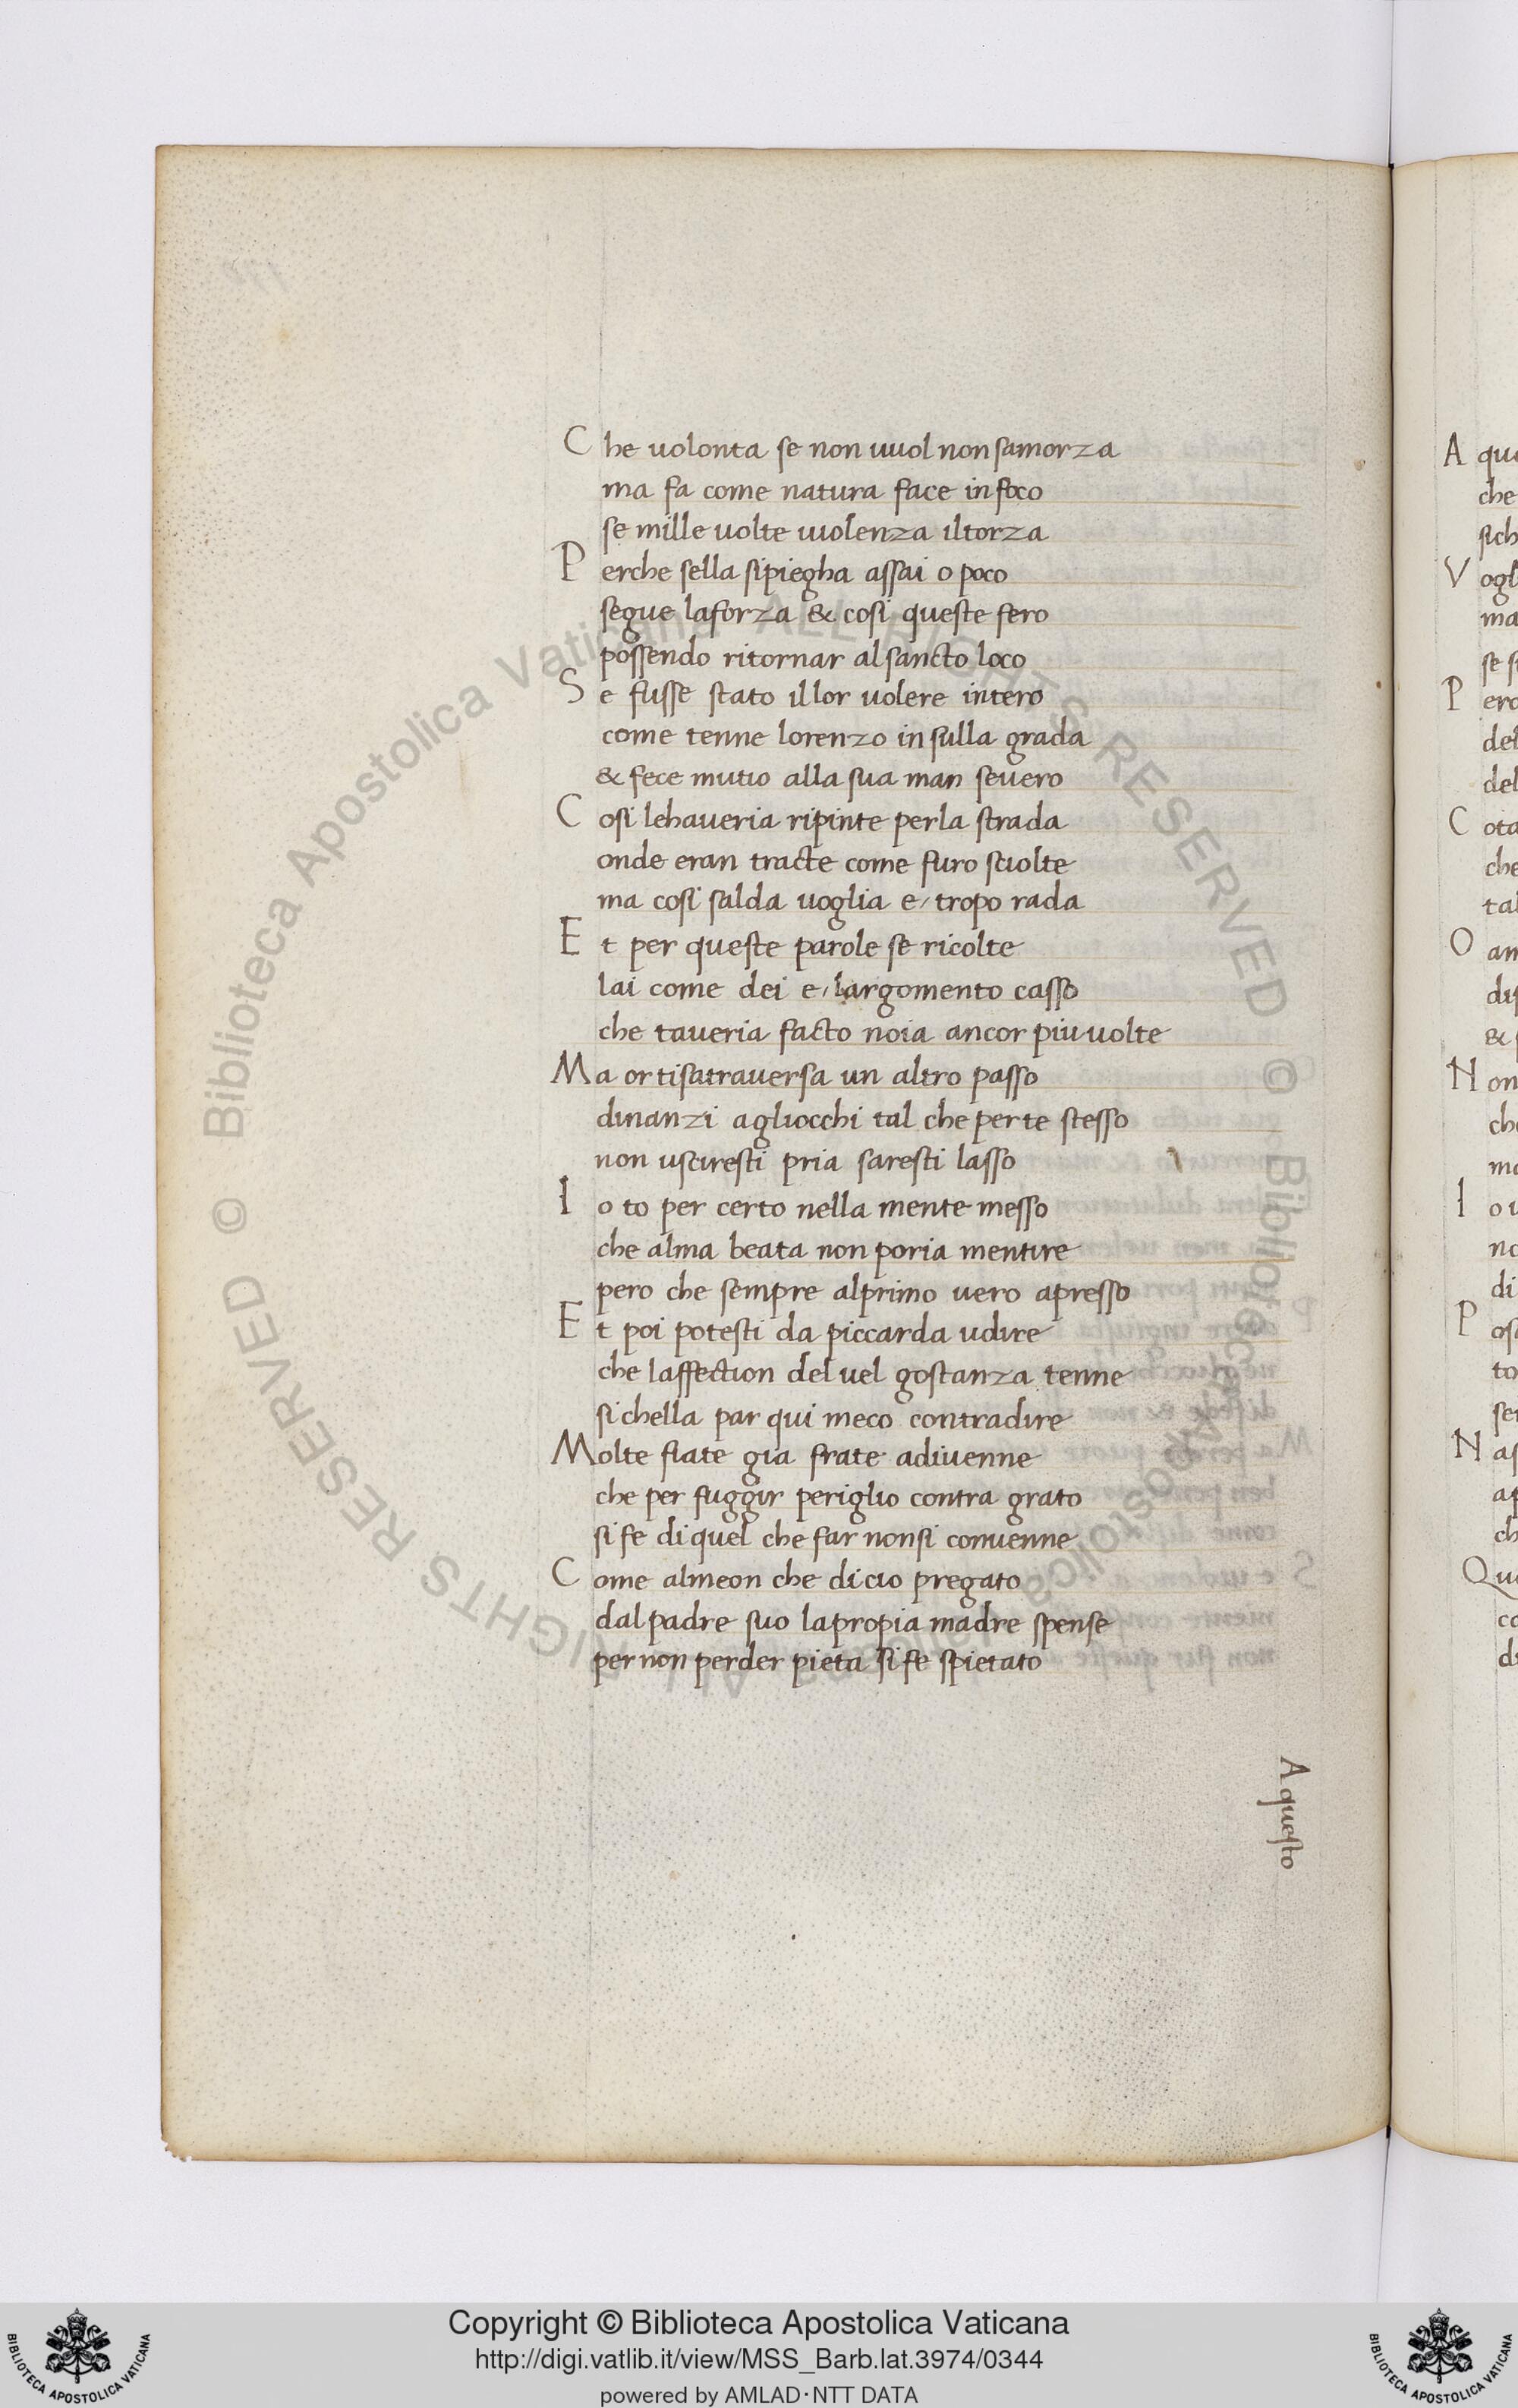 Che uolonta se non uuol non samorza
ma fa come natura face in foco
se mille uolte uiolenza il torza
Perche sella si piegha assai o poco
segue la forza & cosi queste fero
possendo ritornar al sancto loco
Se fusse stato il lor uolere intero
come tenne lorenzo in sulla grada
& fece mutio alla sua man seuero
Cosi lehaueria ripinte per la strada
onde eran tracte come furo sciolte
ma cosi salda uoglia e, tropo rada
Et per queste parole se ricolte
lai come dei e, largomento casso
che taueria facto noia ancor piu uolte
Ma or tisatrauersa un altro passo
dinanzi agliocchi tal che per te stesso
non usciresti pria saresti lasso
Io to per certo nella mente messo
che alma beata non poria mentire
pero che sempre al primo uero apresso
Et poi potesti da piccarda udire
che laffection del uel gostanza tenne
si chella par qui meco contradire
Molte fiate gia frate adiuenne
che per fuggir periglio contra grato
si fe di quel che far non si conuenne
Come almeon che di cio pregato
dal padre suo la propia madre spense
per non perder pieta si fe spietato
A questo
A qu
che
sich
Vogl
ma
se s
Perc
del
del
Cota
che
tal
O am
dis
&
Non
che
ma
Io u
no
di
Pos
to
se
Nas
ap
ch
Qu
co
di
© Biblioteca Apostolica Vaticana ALL RIGHTS RESERVED © Biblioteca Apostolica Vaticana ALL RIGHTS RESERVED
BIBLIOTECA APOSTOLICA VATICANA
Copyright © Biblioteca Apostolica Vaticana
http://digi.vatlib.it/view/MSS_Barb.lat.3974/0344
powered by AMLAD·NTT DATA
BIBLIOTECA APOSTOLICA VATICANA